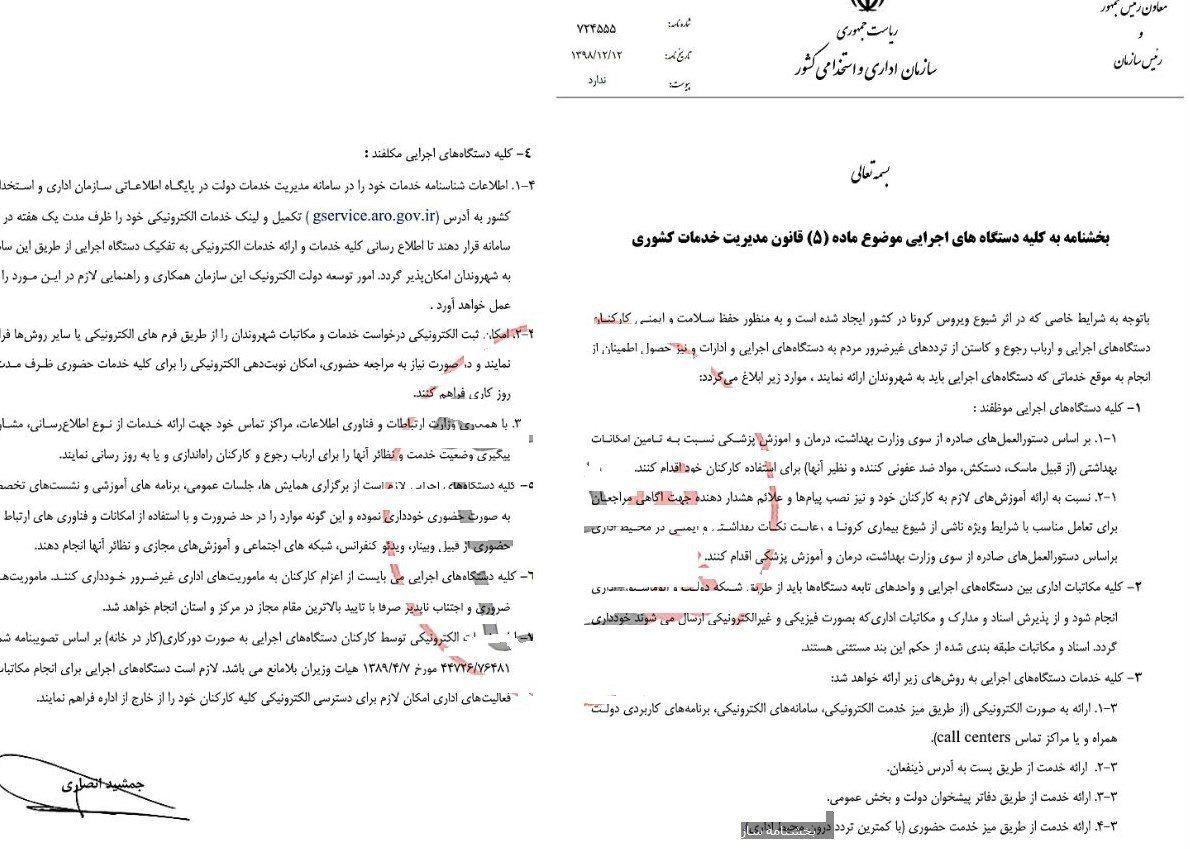 معاون رئیس جمهور
و
رئیس سازمان
ریاست جمهوری
سازمان اداری و استخدامی کشور
شماره نامه: ۷۲۴۵۵۵
تاریخ نامه: ۱۳۹۸/۱۲/۱۲
پیوست: ندارد
بسمه تعالی
بخشنامه به کلیه دستگاه های اجرایی موضوع ماده (۵) قانون مدیریت خدمات کشوری
باتوجه به شرایط خاصی که در اثر شیوع ویروس کرونا در کشور ایجاد شده است و به منظور حفظ سلامت و ایمنی کارکنان
دستگاه‌های اجرایی و ارباب رجوع و کاستن از ترددهای غیرضرور مردم به دستگاه‌های اجرایی و ادارات و نیز حصول اطمینان از
انجام به موقع خدماتی که دستگاه‌های اجرایی باید به شهروندان ارائه نمایند ، موارد زیر ابلاغ می‌گردد:
۱- کلیه دستگاه‌های اجرایی موظفند :
۱-۱. بر اساس دستورالعمل‌های صادره از سوی وزارت بهداشت، درمان و اموزش پزشکی نسبت به تامین امکانات
بهداشتی (از قبیل ماسک، دستکش، مواد ضد عفونی کننده و نظیر آنها) برای استفاده کارکنان خود اقدام کنند.
۲-۱. نسبت به ارائه آموزش‌های لازم به کارکنان خود و نیز نصب پیام‌ها و علائم هشدار دهنده جهت آگاهی مراجعین
برای تعامل مناسب با شرایط ویژه ناشی از شیوع بیماری کرونا و رعایت نکات بهداشتی و ایمنی در محیط اداری
براساس دستورالعمل‌های صادره از سوی وزارت بهداشت، درمان و آموزش پزشکی اقدام کنند.
۲- کلیه مکاتبات اداری بین دستگاه‌های اجرایی و واحدهای تابعه دستگاه‌ها باید از طریق شبکه دولت و اتوماسیون اداری
انجام شود و از پذیرش اسناد و مدارک و مکاتبات اداری که بصورت فیزیکی و غیرالکترونیکی ارسال می شوند خودداری
گردد. اسناد و مکاتبات طبقه بندی شده از حکم این بند مستثنی هستند.
۳- کلیه خدمات دستگاه‌های اجرایی به روش‌های زیر ارائه خواهد شد:
۱-۳. ارائه به صورت الکترونیکی (از طریق میز خدمت الکترونیکی، سامانه‌های الکترونیکی، برنامه‌های کاربردی دولت
همراه و یا مراکز تماس call centers).
۲-۳. ارائه خدمت از طریق پست به آدرس ذینفعان.
۳-۳. ارائه خدمت از طریق دفاتر پیشخوان دولت و بخش عمومی.
۴-۳. ارائه خدمت از طریق میز خدمت حضوری (با کمترین تردد درون محیط اداری)
بخشنامه ساز
۴- کلیه دستگاه‌های اجرایی مکلفند :
۱-۴. اطلاعات شناسنامه خدمات خود را در سامانه مدیریت خدمات دولت در پایگاه اطلاعاتی سازمان اداری و استخدا
کشور به آدرس (gservice.aro.gov.ir ) تکمیل و لینک خدمات الکترونیکی خود را ظرف مدت یک هفته در
سامانه قرار دهند تا اطلاع رسانی کلیه خدمات و ارائه خدمات الکترونیکی به تفکیک دستگاه اجرایی از طریق این سا
به شهروندان امکان‌پذیر گردد. امور توسعه دولت الکترونیک این سازمان همکاری و راهنمایی لازم در این مورد را
عمل خواهد آورد .
۲-۴. امکان ثبت الکترونیکی درخواست خدمات و مکاتبات شهروندان را از طریق فرم های الکترونیکی یا سایر روش‌ها فرا
نمایند و در صورت نیاز به مراجعه حضوری، امکان نوبت‌دهی الکترونیکی را برای کلیه خدمات حضوری ظرف مدت
روز کاری فراهم کنند.
۳. با همکاری وزارت ارتباطات و فناوری اطلاعات، مراکز تماس خود جهت ارائه خدمات از نوع اطلاع‌رسانی، مشا
پیگیری وضعیت خدمت و نظائر آنها را برای ارباب رجوع و کارکنان راه‌اندازی و یا به روز رسانی نمایند.
۵- کلیه دستگاه‌های اجرایی لازم است از برگزاری همایش ها، جلسات عمومی، برنامه های آموزشی و نشست‌های تخصص
به صورت حضوری خودداری نموده و این گونه موارد را در حد ضرورت و با استفاده از امکانات و فناوری های ارتباط
حضوری از قبیل وبینار، ویدئو کنفرانس، شبکه های اجتماعی و آموزش‌های مجازی و نظائر آنها انجام دهند.
۶- کلیه دستگاه‌های اجرایی می بایست از اعزام کارکنان به ماموریت‌های اداری غیرضرور خودداری کنند. ماموریت‌ه
ضروری و اجتناب ناپذیر صرفا با تایید بالاترین مقام مجاز در مرکز و استان انجام خواهد شد.
الکترونیکی توسط کارکنان دستگاه‌های اجرایی به صورت دورکاری(کار در خانه) بر اساس تصویبنامه شم
۴۴۷۲۶/۷۶۴۸۱ مورخ ۱۳۸۹/۴/۷ هیات وزیران بلامانع می باشد. لازم است دستگاه‌های اجرایی برای انجام مکاتبا
فعالیت‌های اداری امکان لازم برای دسترسی الکترونیکی کلیه کارکنان خود را از خارج از اداره فراهم نمایند.
جمشید انصاری